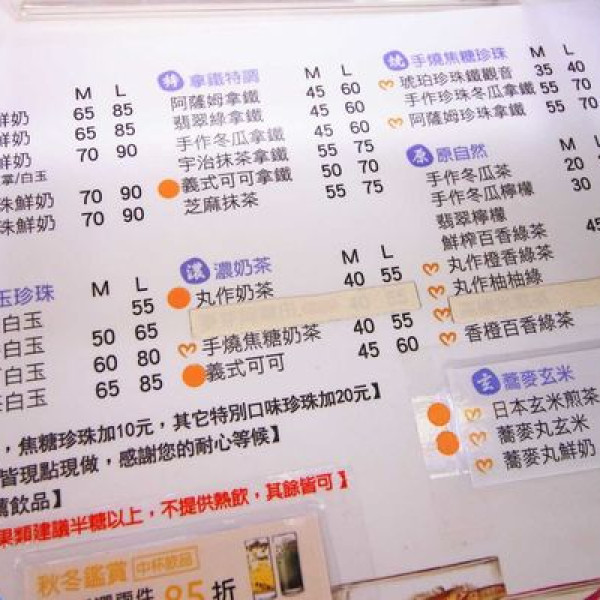 M L
鮮奶 65 85
鮮奶 65 85
鮮奶 70 90
掌/白玉
珠鮮奶 70 90
珠鮮奶 70 90
玉珍珠 M L
白玉 55
白玉 50 65
白玉 60 80
白玉 65 85
拿鐵特調 M L
阿薩姆拿鐵 45 60
翡翠綠拿鐵 45 60
手作冬瓜拿鐵 45 60
宇治抹茶拿鐵 55 75
義式可可拿鐵 50 70
芝麻抹茶 55 75
濃 濃奶茶 M L
丸作奶茶 40 55
手燒焦糖奶茶 40 55
義式可可 45 60
手燒焦糖珍珠 M L
琥珀珍珠鐵觀音 35 40
手作珍珠冬瓜拿鐵 55 70
阿薩姆珍珠拿鐵 55 70
原 原自然 M L
手作冬瓜茶 20
手作冬瓜檸檬 30
翡翠檸檬
鮮榨百香綠茶 45
丸作橙香綠茶
丸作柚柚綠
香橙百香綠茶
玄 蕎麥玄米
日本玄米煎茶
蕎麥丸玄米
蕎麥丸鮮奶
，焦糖珍珠加10元，其它特別口味珍珠加20元】
皆現點現做，感謝您的耐心等候】
飲品】
果類建議半糖以上，不提供熱飲，其餘皆可】
秋冬鑑賞 中杯飲品
兩件 85折